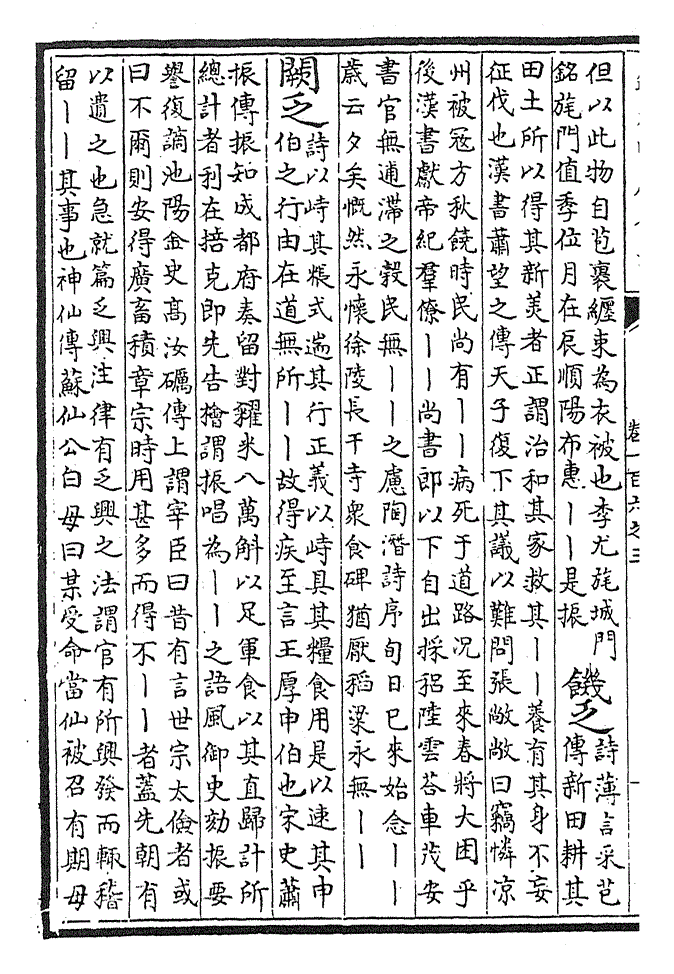 但以此物自苞裹纏束為衣被也李尤旄城門
銘旄門值季位月在辰順陽布惠丨丨是振
饑乏
詩薄言采芑
傳新田耕其
田土所以得其新美者正謂治和其家救其丨丨養育其身不妄
征伐也漢書蕭望之傳天子復下其議以難問張敞敞曰竊憐凉
州被冦方秋饒時民尚有丨丨病死于道路况至來春將大困乎
後漢書獻帝紀羣僚丨丨尚書郎以下自出採稆陸雲荅車茂安
書官無逋滯之榖民無丨丨之慮陶潛詩序旬日已來始念丨丨
歲云夕矣慨然永懷徐陵長干寺衆食碑猶厭稻粱永無丨丨
闕乏
詩以峙其粻式遄其行正義以峙具其糧食用是以速其申
伯之行由在道無所丨丨故得疾至言王厚申伯也宋史蕭
振傳振知成都府奏留對糴米八萬斛以足軍食以其直歸計所
總計者利在掊克即先告檜謂振唱為丨丨之語風御史劾振要
譽復謫池陽金史髙汝礪傳上謂宰臣曰昔有言世宗太儉者或
曰不爾則安得廣畜積章宗時用甚多而得不丨丨者蓋先朝有
以遺之也急就篇乏興注律有乏興之法謂官有所興發而輒稽
留丨丨其事也神仙傳蘇仙公白母曰某受命當仙被召有期母
卷一百六之三